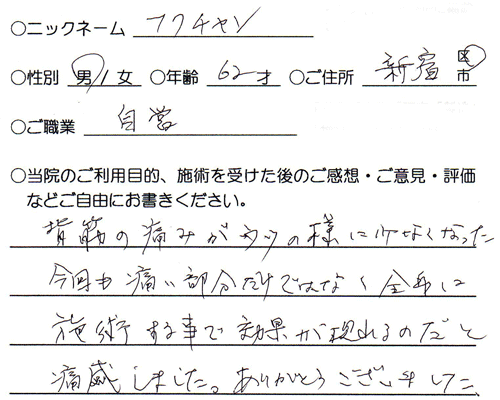 ○ニックネーム フクチャン
○性別 男/女 ○年齢 62才 ○ご住所 新宿 区 市
○ご職業 自営
○当院のご利用目的、施術を受けた後のご感想・ご意見・評価
などご自由にお書きください。
背筋の痛みがウソの様に少なくなった
今回も痛い部分だけではなく全身に
施術する事で効果が現れるのだと
痛感しました。ありがとうございました